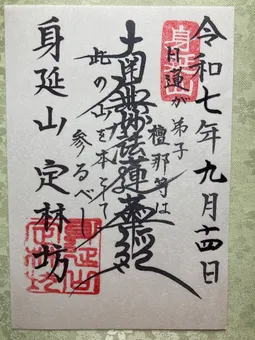 令和七年九月十四日
身延山
日蓮が弟子檀那等は
此の山を本として
参るべし
南無妙法蓮華経
身延山 定林坊